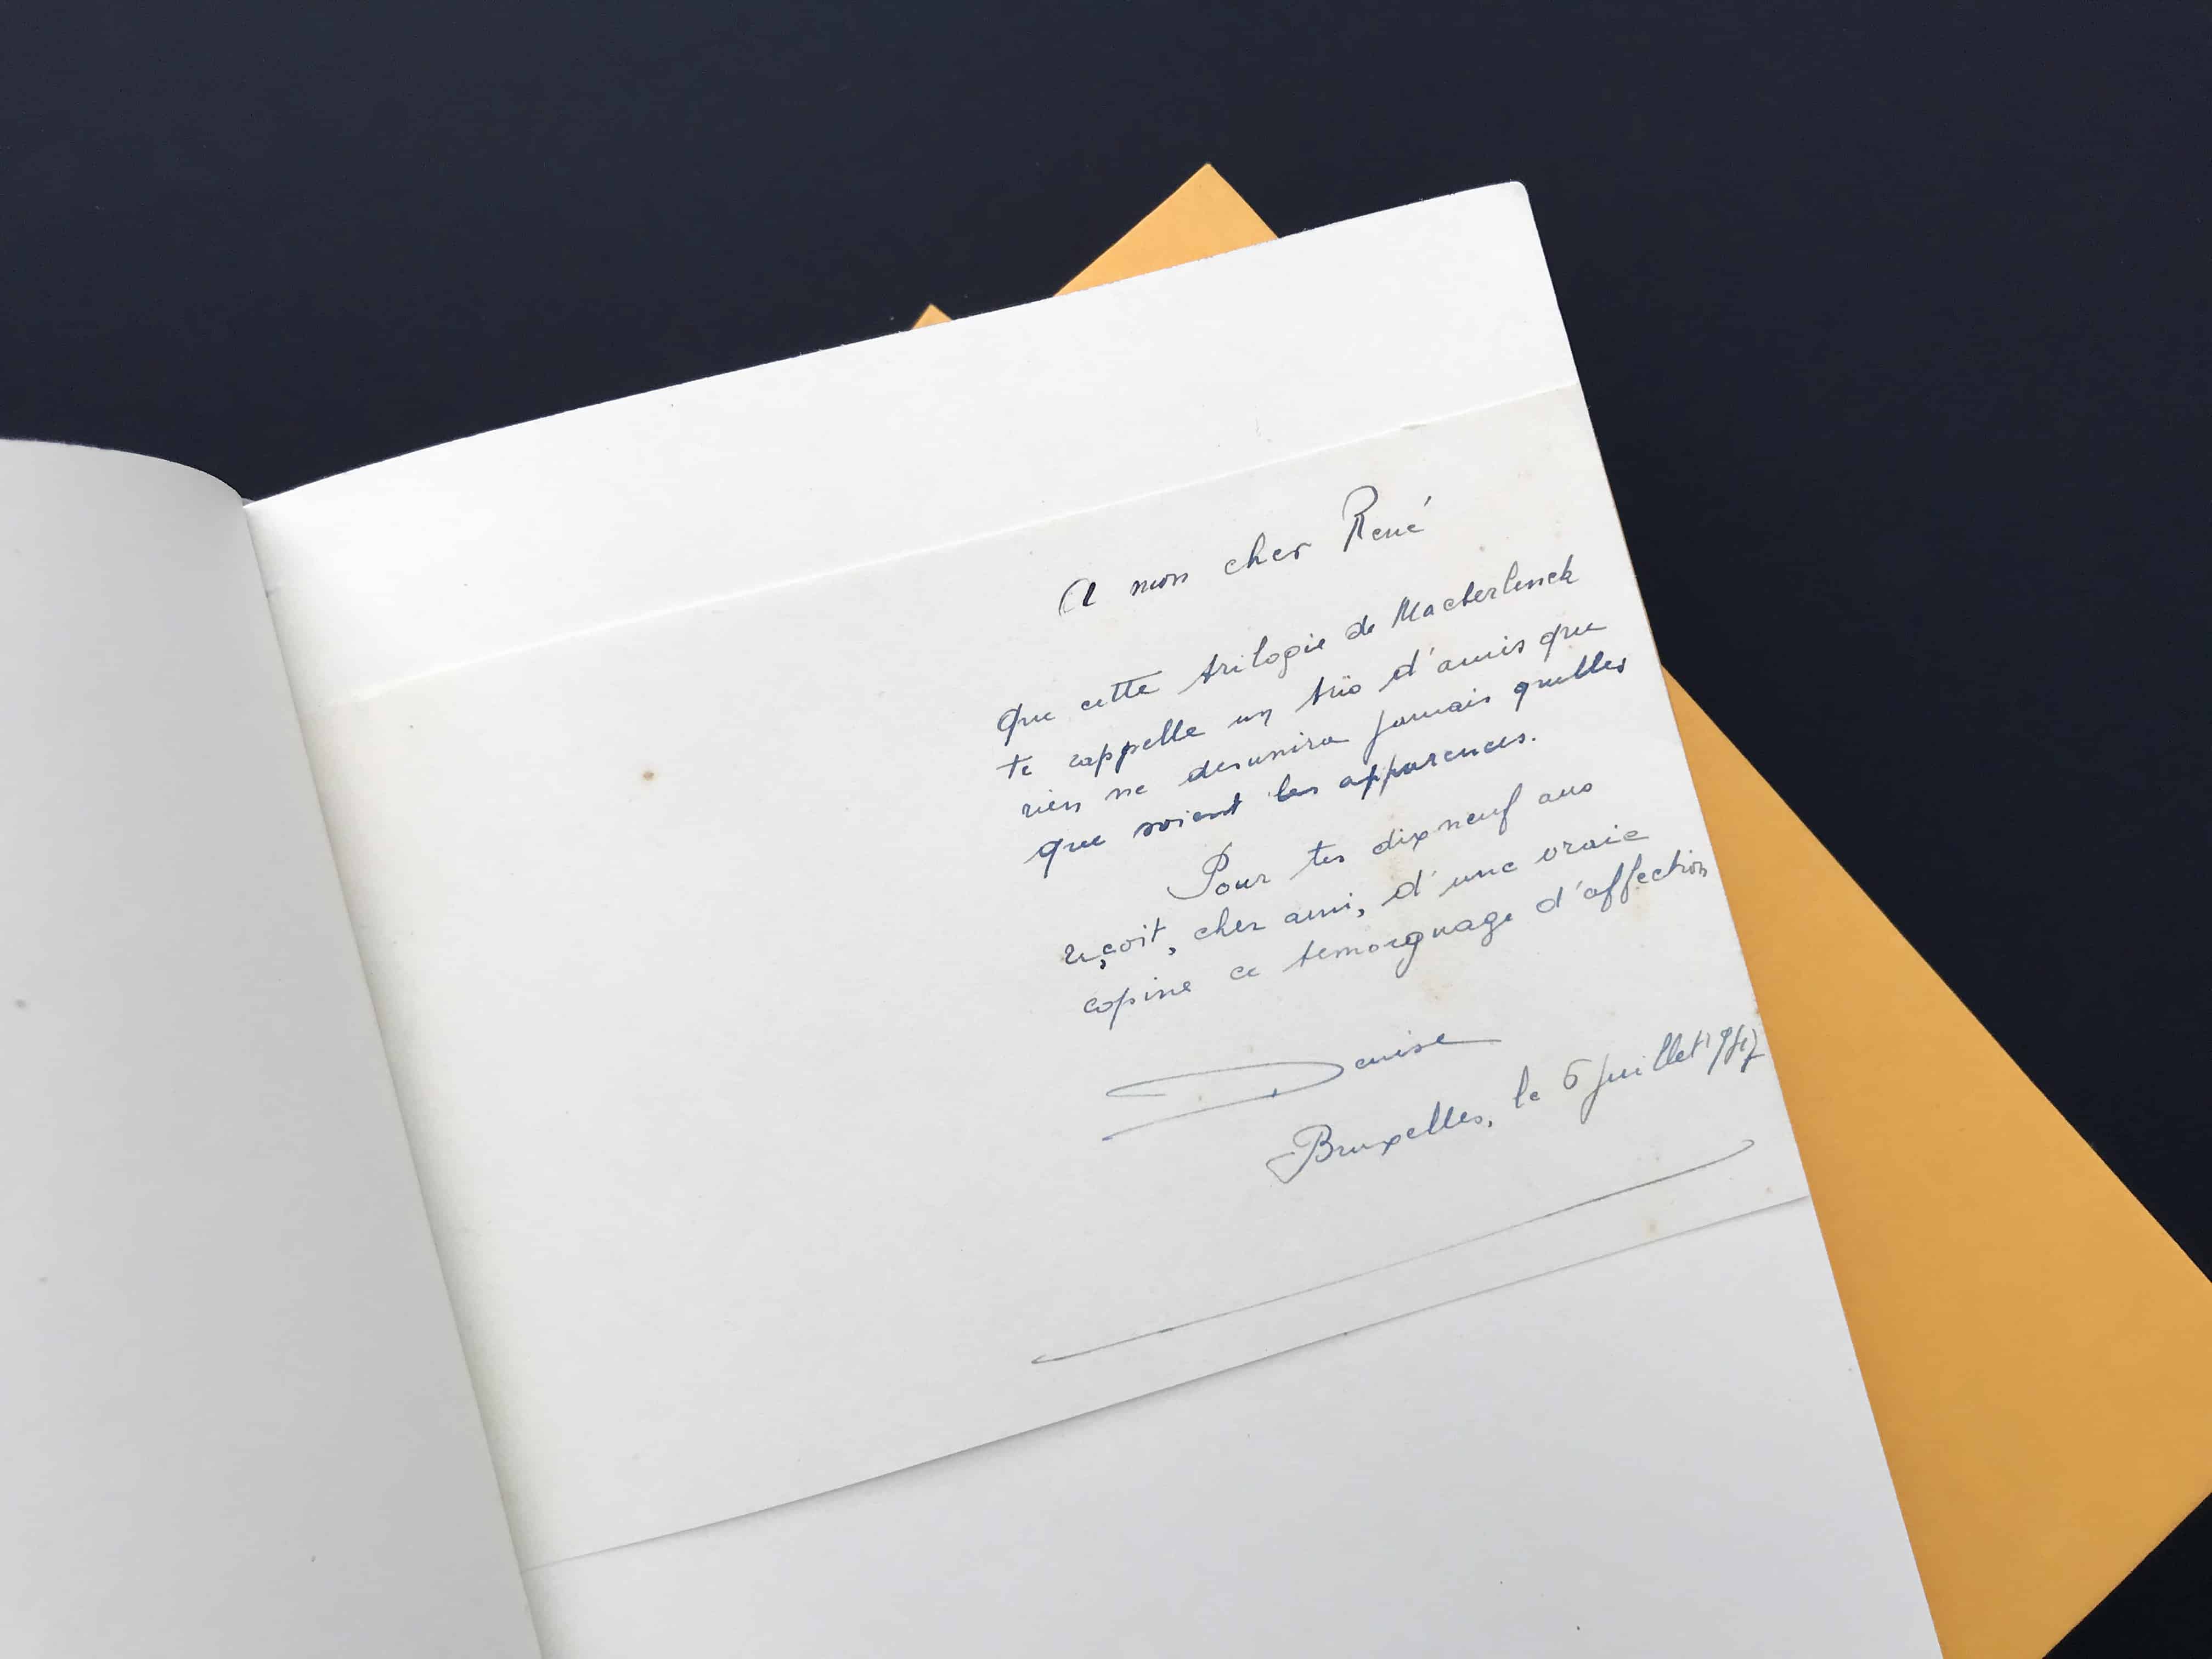 A mon cher René
Que cette trilogie de Maeterlinck
te rappelle un trio d'amis que
rien ne desunira jamais quelles
que soient les apparences.
Pour tes dix neuf ans
reçoit, cher ami, d'une vraie
copine ce temoignage d'affection
Denise
Bruxelles, le 6 juillet 1947